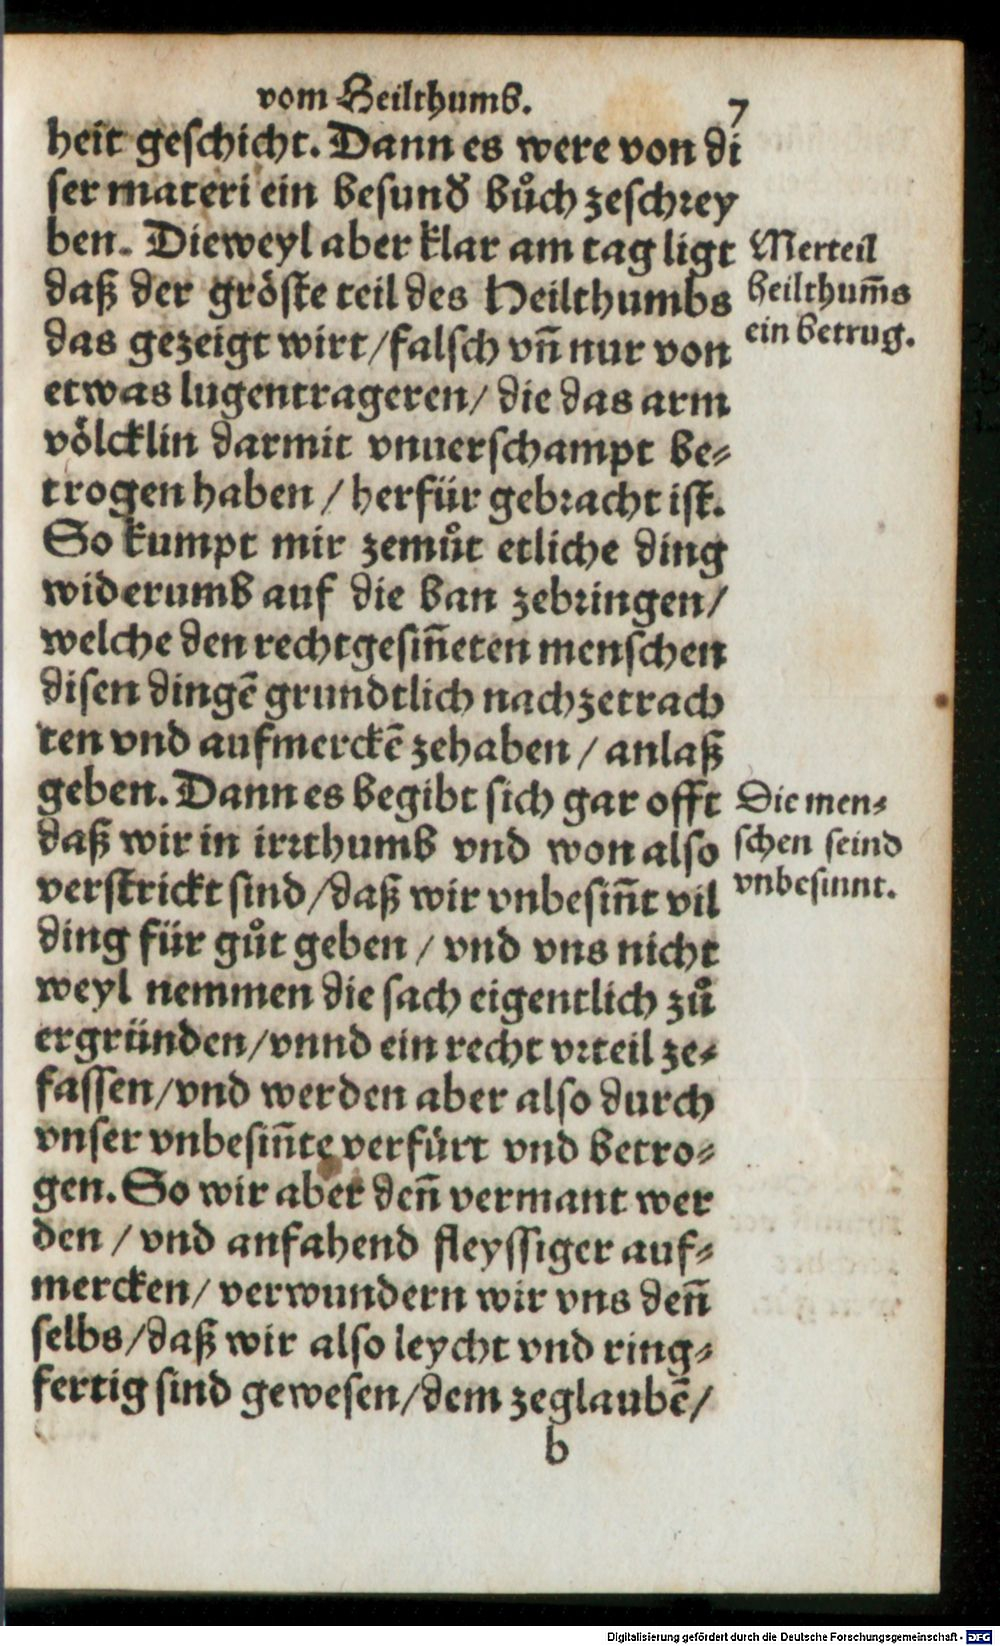 vom Heilthumb.
7
heit geschicht. Dann es were von di
ser materi ein besund̛ bůch zeschrey
ben. Dieweyl aber klar am tag ligt
daß der gröste teil des Heilthumbs
das gezeigt wirt/falsch vn̄ nur von
etwas lugentrageren/ die das arm
völcklin darmit vnuerschampt be⸗
trogen haben / herfür gebracht ist.
So kumpt mir zemůt etliche ding
widerumb auf die ban zebringen/
welche den rechtgesin̄eten menschen
disen dingē grundtlich nachzetrach
ten vnd aufmerckē zehaben / anlaß
geben. Dann es begibt sich gar offt
daß wir in irrthumb vnd won also
verstrickt sind/daß wir vnbesin̄t vil
ding für gůt geben / vnd vns nicht
weyl nemmen die sach eigentlich zů
ergründen/vnnd ein recht vrteil ze⸗
fassen/vnd werden aber also durch
vnser vnbesin̄te verfürt vnd betro⸗
gen. So wir aber den̄ vermant wer
den / vnd anfahend fleyssiger auf⸗
mercken/ verwundern wir vns den̄
selbs/daß wir also leycht vnd ring⸗
fertig sind gewesen/dem zeglaubē/
b
Merteil
heilthum̄s
ein betrug.
Die men⸗
schen seind
vnbesinnt.
Digitalisierung gefördert durch die Deutsche Forschungsgemeinschaft - DFG